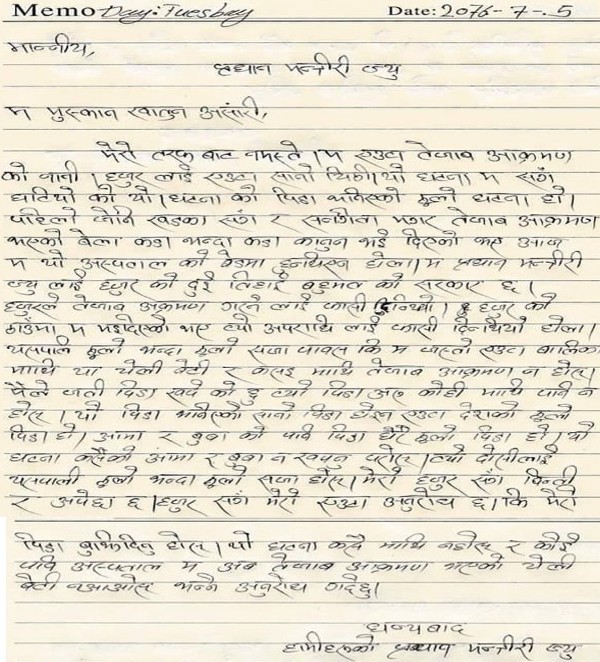 Memo Day: Tuesbay Date: 2076-7-.5
मान्नीय,
प्रधान मन्त्रीरी ज्यु
म मुस्कान खातुन असांरी,
मेरो तरफ बाट नमस्ते । म एउटा तेजाब आक्रमण
को पानी । हजुर लाई एउटा सानो चिठी । यो घटना म सगँ
घटियो को यो । घटना को पिडा भनिएको ठूलो घटना हो ।
पहिलो पनि खडका सगँ र सनगौला माथर तेजाब आक्रमण
भएको बेला कडा भन्दा कडा कानुन भई दिएको भए आज
म यो अस्पताल को बेडमा हुन्थिएन होला । म प्रधान मन्त्रीरी
ज्यु लाई हजुर को दुई तिहाई बहुमत को सरकार छ ।
हजुरले तेजाब आक्रमण गरने लाई फासी दिन्थियो । हजुर को
ठाउँमा म भईदिएको भए त्यो अपराधि लाई फासी दिन्थियो होला ।
यसपालि ठूलो भन्दा ठूलो सजा पावस कि म जस्तो एउटा बालिका
माथि या चेली बेटी र कसइ माथि तेजाब आक्रमण न होस् ।
मैले जती पिडा खपे को छु त्यो पिडा अरु कोही माथि पनि न
होस् । यो पिडा भनिएको सानो पिडा होइन एउटा देशको ठूलो
पिडा हो । आमा र बुवा को पनि पिडा धेरै ठूलो पिडा हो । यो
घटना कसैको आमा र बुवा न खपुन परोस् । त्यो दोसीलाई
यसपाली ठूलो भन्दा ठूलो सजा होस् । मेरो हजुर सगँ विन्ती
र अपेछा छ । हजुर सगँ मेरो एउटा अनुरोध छ । कि मेरो
पिडा बुझिदिनु होस् । यो घटना कसै माथि नहोस् र कोई
पनि अस्पताल म अब तेजाब आक्रमण भएको चेली
बेटी नआओस् भन्ने अनुरोध गर्दछु ।
धन्यबाद
हामीहरुको प्रधान मन्त्रीरी ज्यु